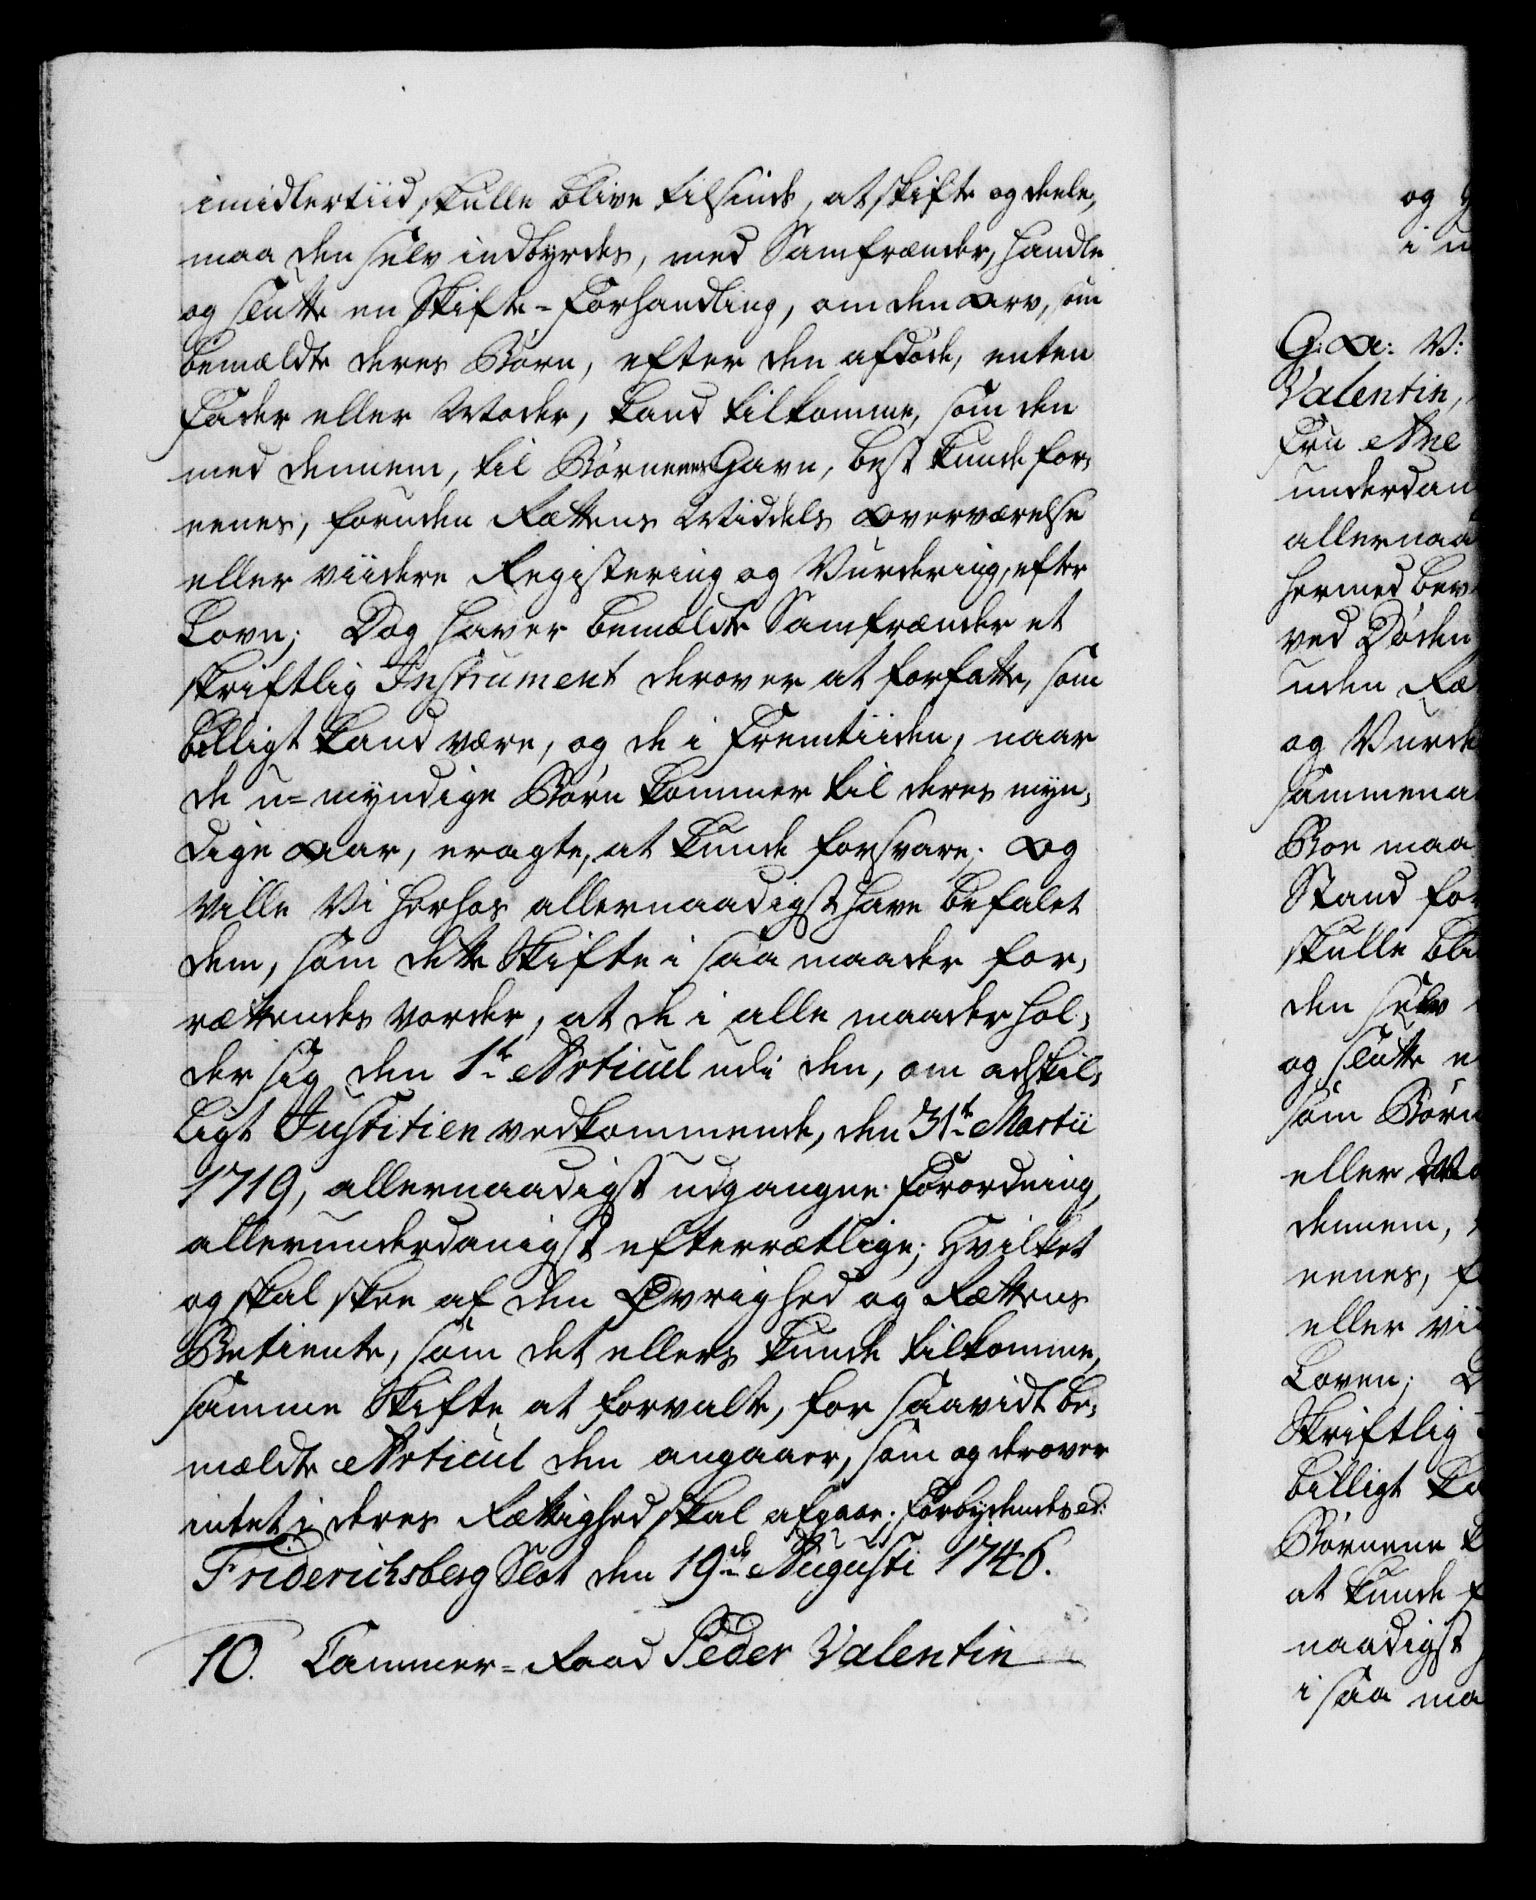 imidlertiid skulle blive tilsinds, at skifte og deele,
maa den selv indbyrdes, med Samfrænder, handle
og slutte en Skifte-Forhandling, om den Arv, som
bemældte deres Børn, efter den afdøde, enten
Fader eller Moder, kand tilkomme, som den
med dennem, til Børnenes Gavn, best kunde for-
eenes, foruden Rættens Middels Overværelse
eller viidere Registering og Vurdering, efter
Lovn; Dog haver bemældte Samfrænder et
skriftlig Instrument derover at forfatte, som
billigt kand være, og de i Fremtiiden, naar
de u-myndige Børn kommer til deres myn-
dige Aar, eragte, at kunde forsvare; Og
ville Vi herhos allernaadigst have befalet
dem, som dette Skifte i saa maader for-
rættendes vorder, at de i alle maader hol-
der sig den 1te Articul udi den, om adskil-
ligt Justitien vedkommende, den 31te Martii
1719, allernaadigst udgangne Forordning,
allerunderdanigst efterrætlige; Hvilket
og skal skee af den Øvrighed og Rættens
Betiente, som det ellers kunde tilkomme,
samme Skifte at forvalte, for saavidt be-
mældte Articul den angaaer, som og derover
intet i deres Rættighed skal afgaae; Forbydendes etc:
Friderichsberg Slot den 19de Augusti 1746.
10. Cammer-Raad Peder Valentin
og
i
G: A: V:
Valentin,
Fru Ane
underdan
allernaa
hermed bev
ved Døden
uden Ræ
og Vurde
sammena
Boe maa
Stand for
skulle bli
den selv
og slutte e
som Børn
eller Mo
dennem,
eenes, f
eller vi
Loven; D
Skriftlig
billigt ka
Børnene k
at kunde f
naadigst
i saa ma